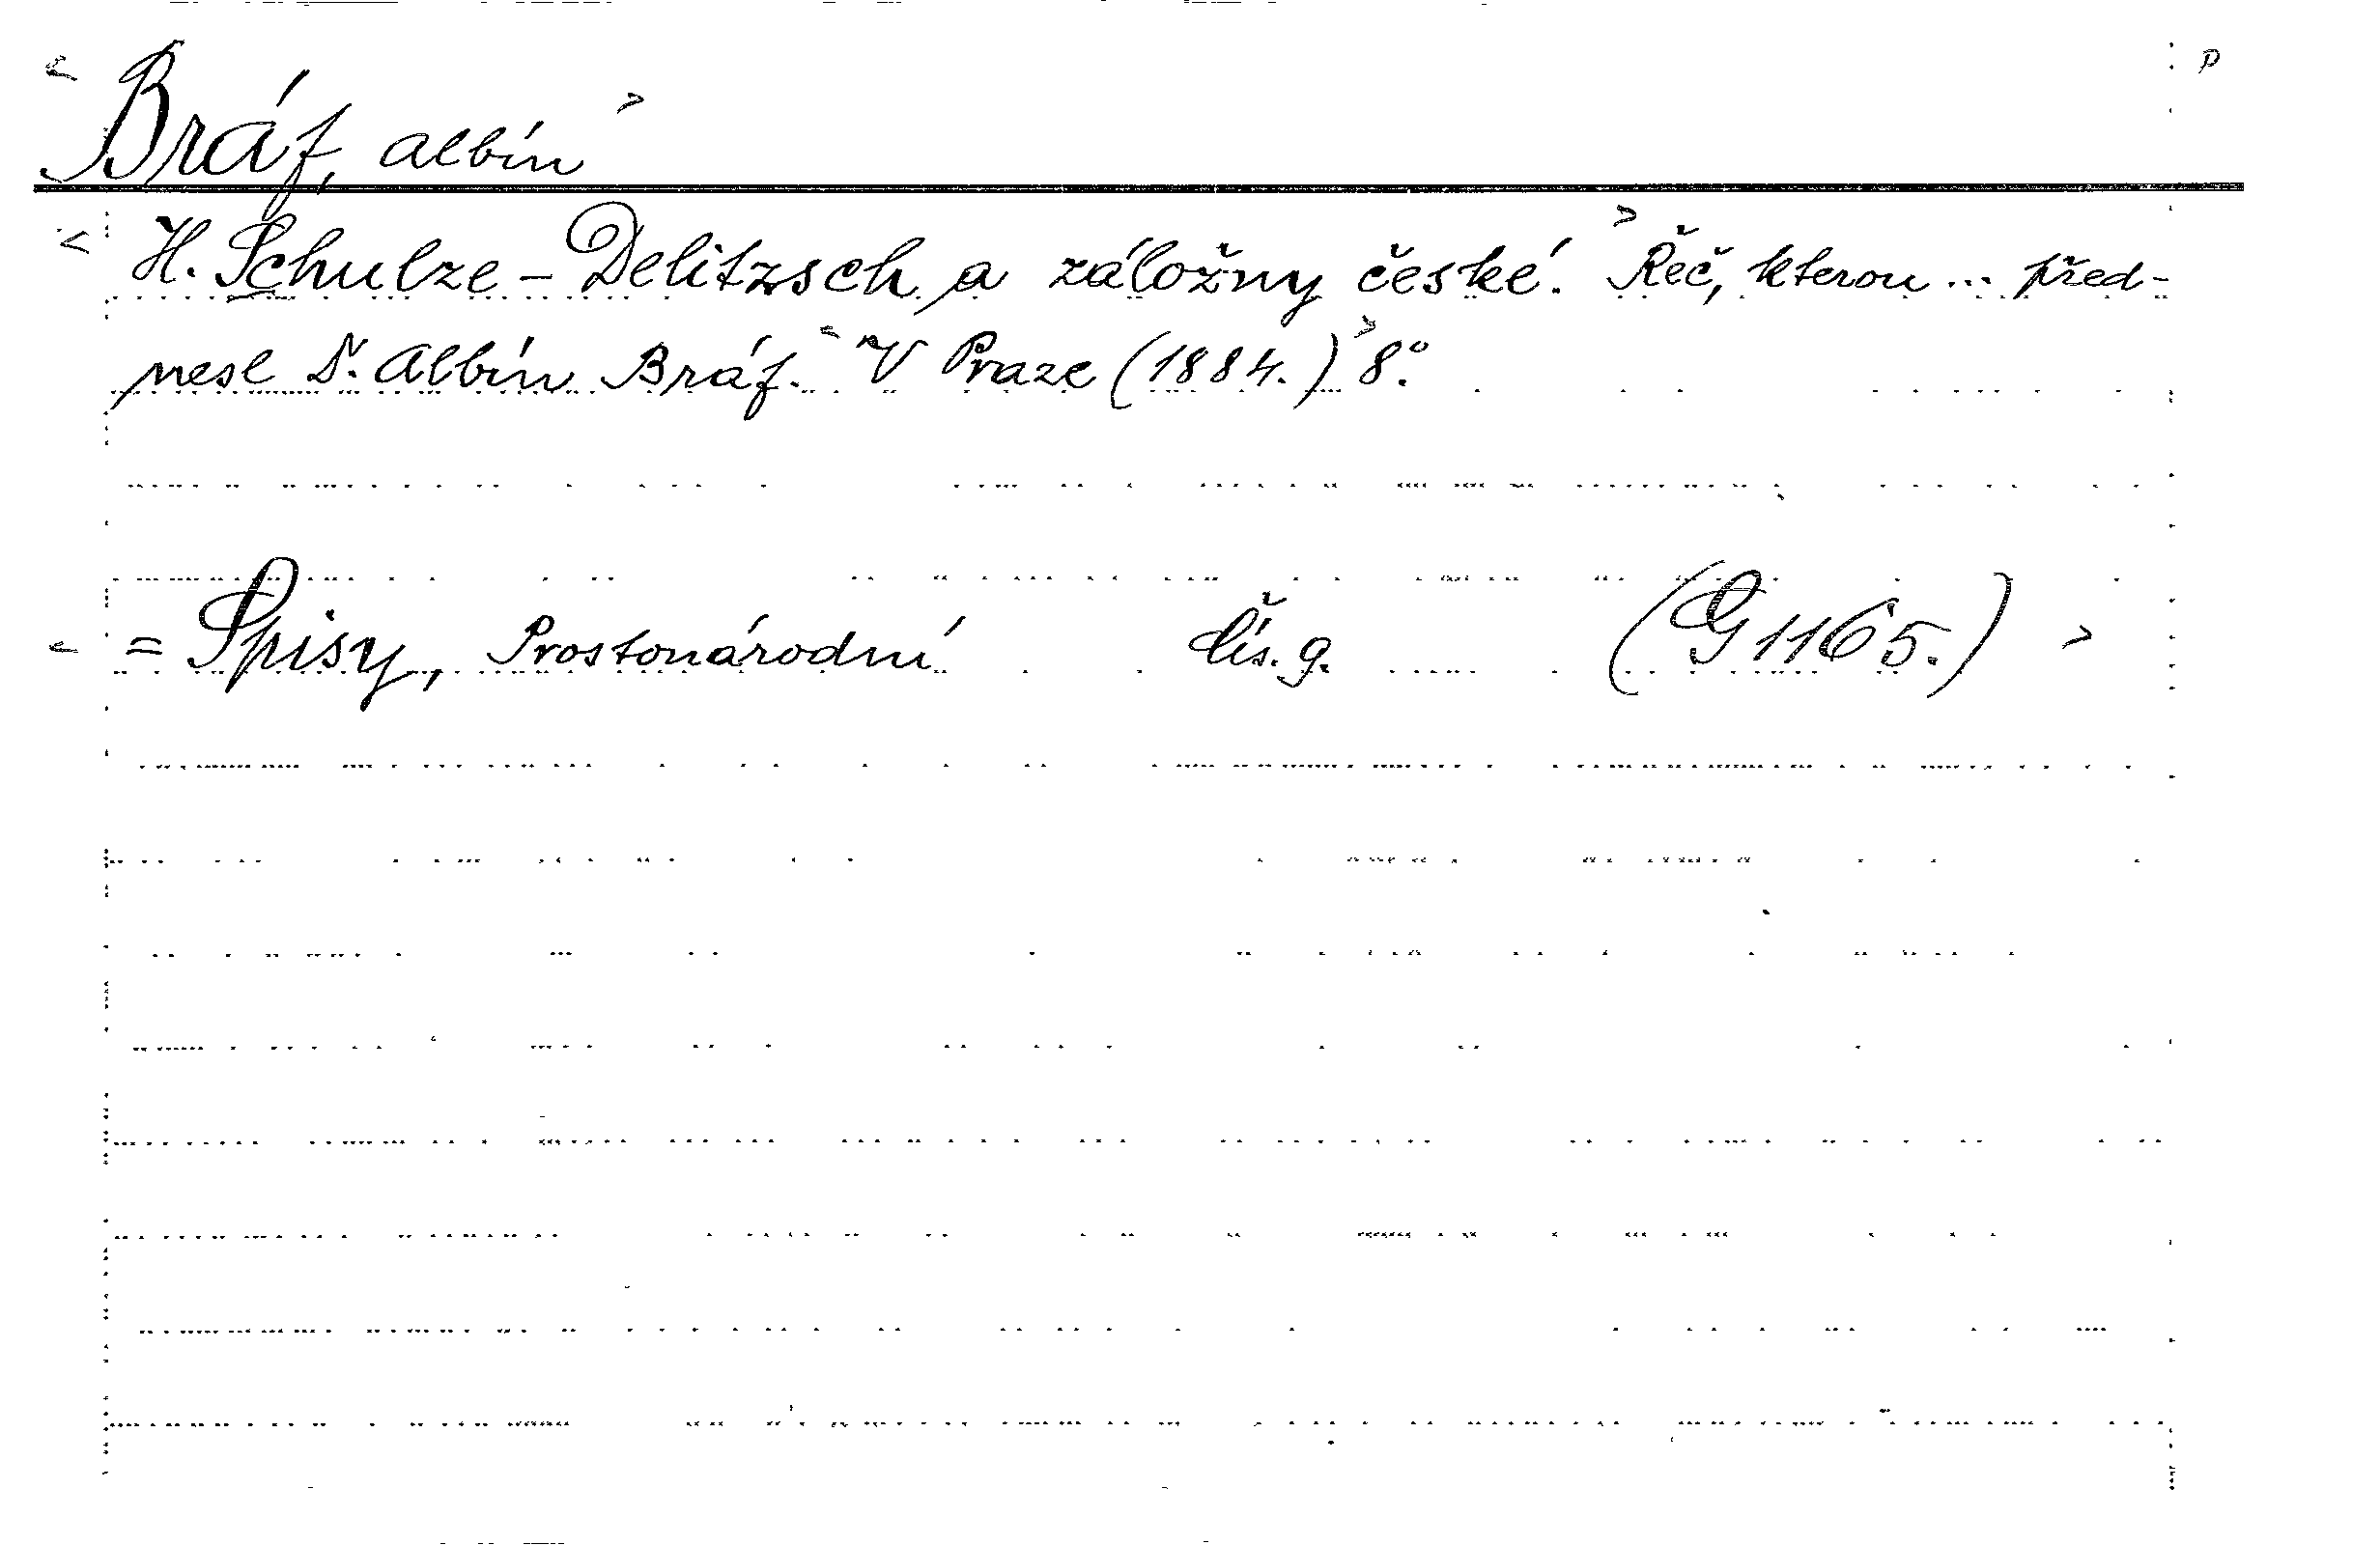 < Bráf, Albín > p
< H. Schulze-Delitzsch a záložny české. > Řeč, kterou ... před-
nesl Dr. Albín Bráf. < V Praze (1884.) > 8°.
< = Spisy, Prostonárodní Čís. 9. (G 1165.) >